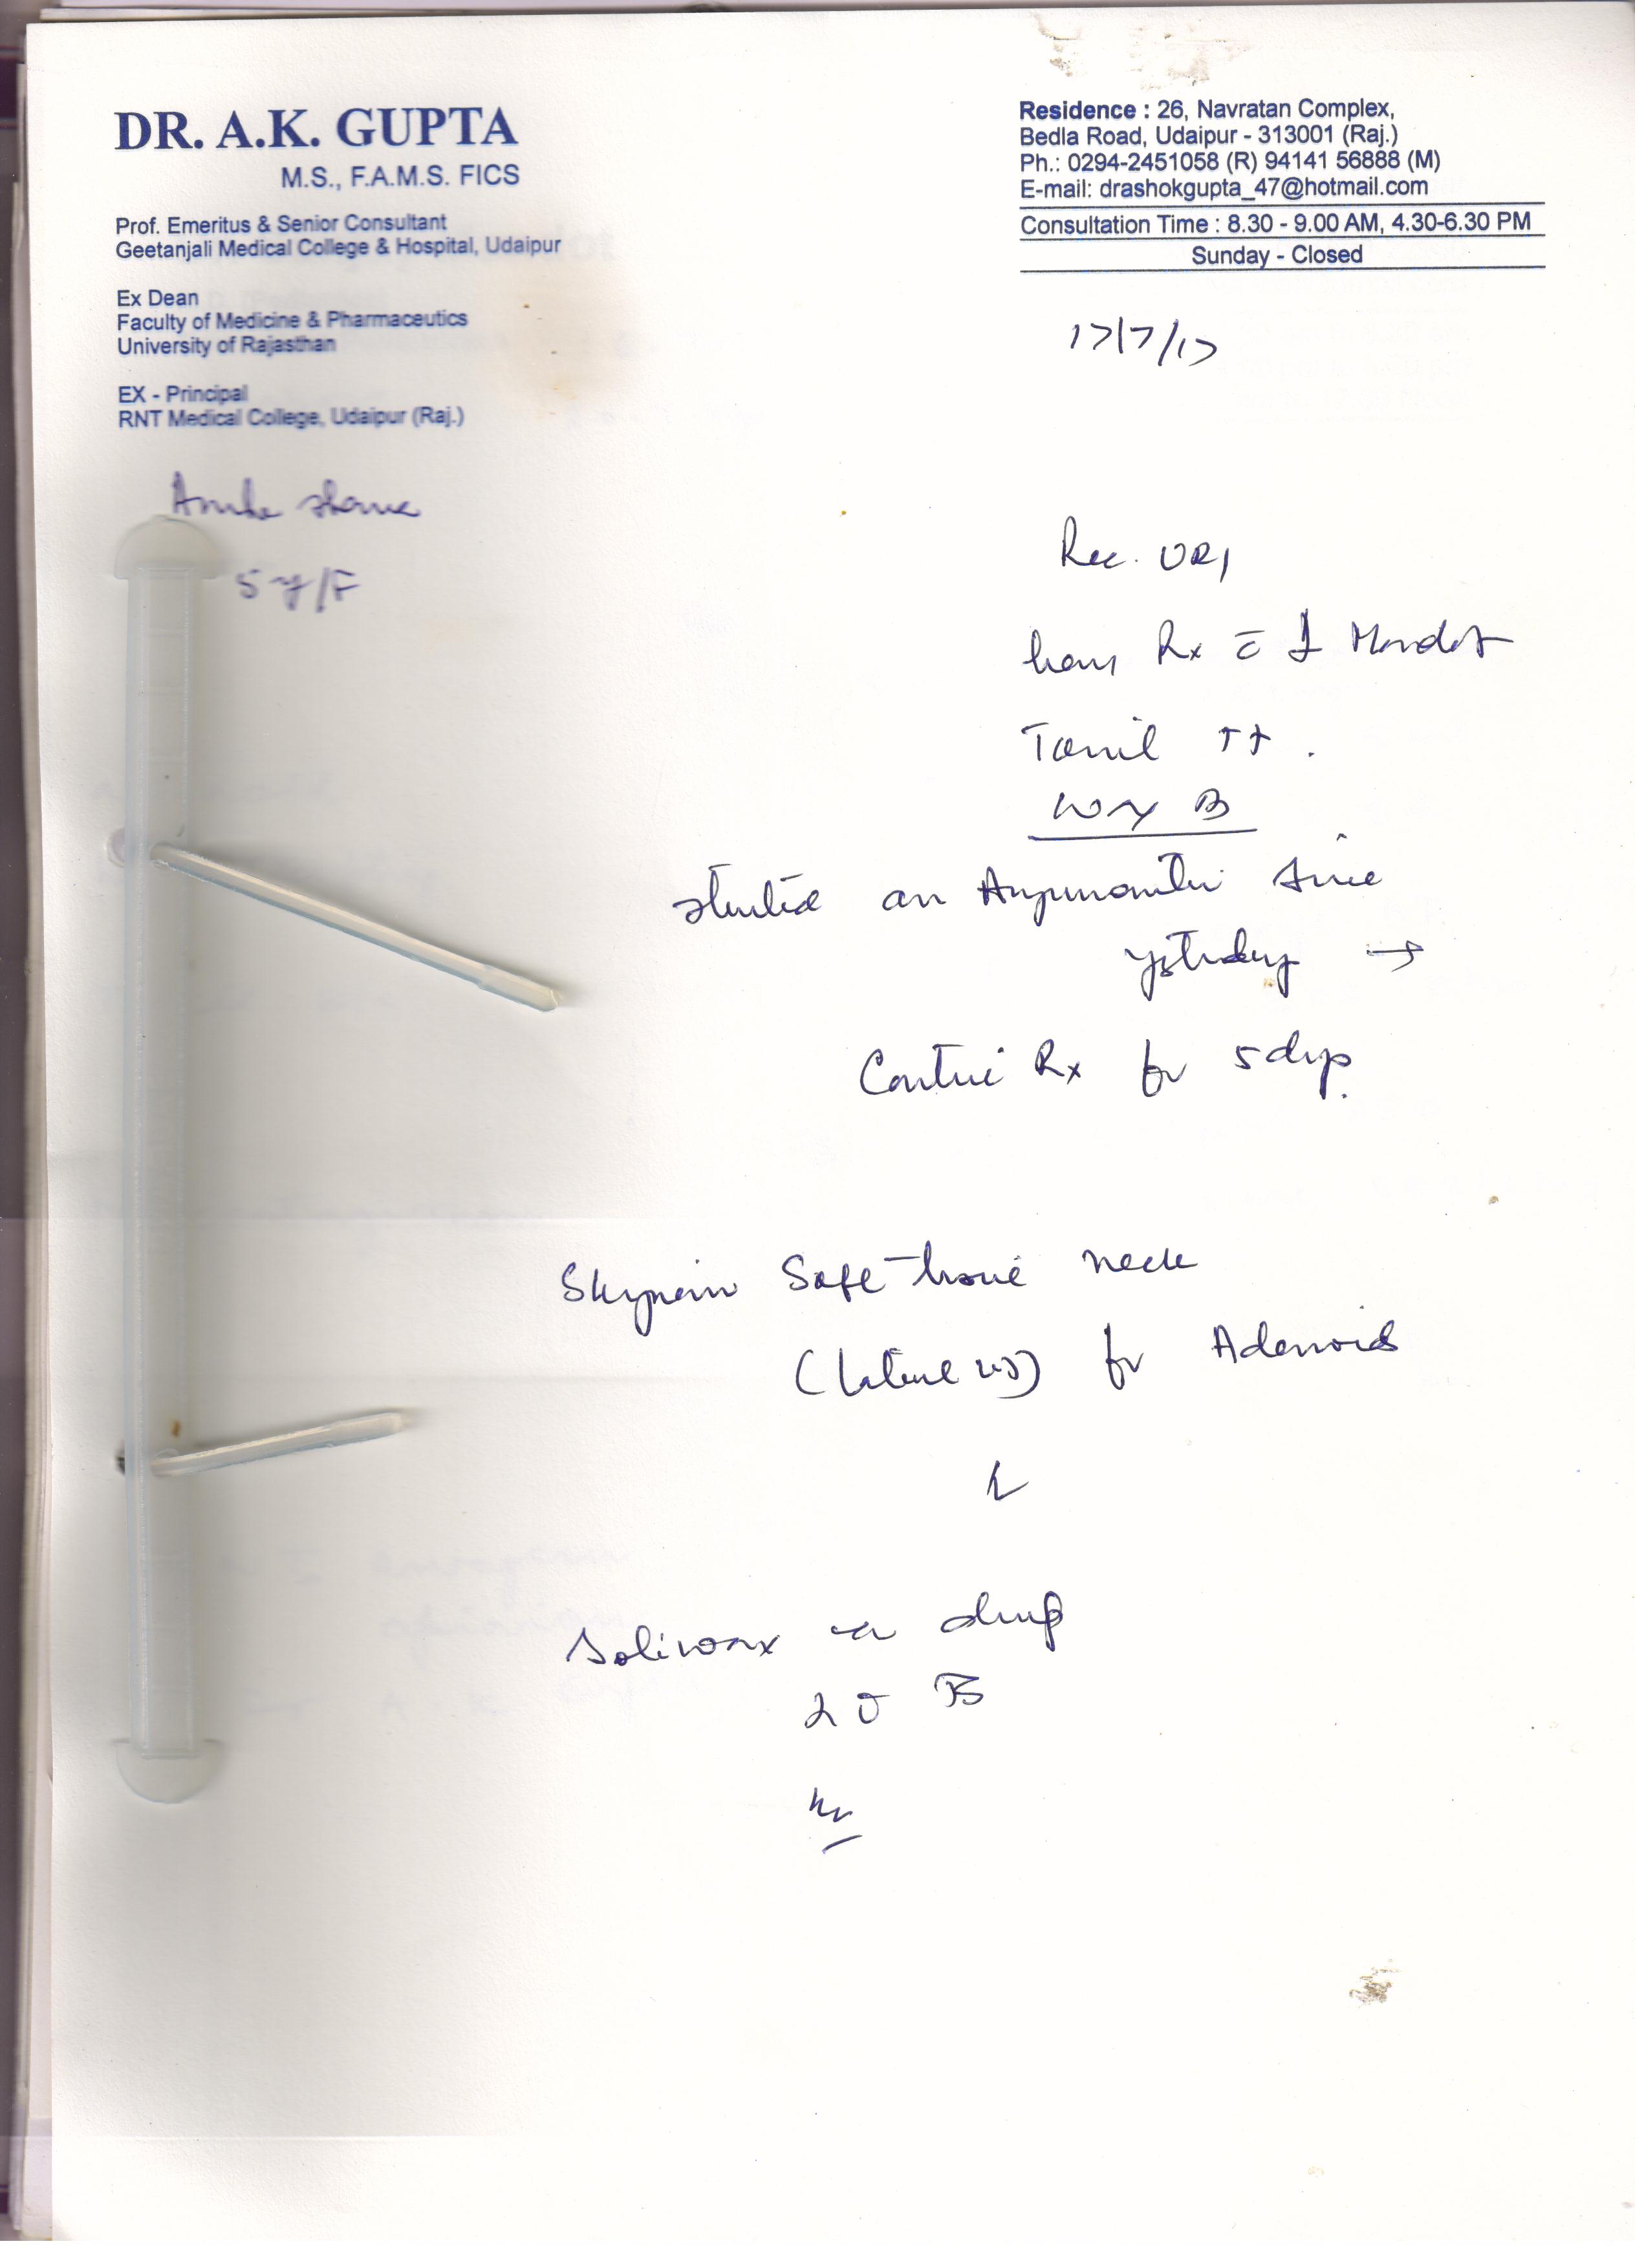 DR. A.K. GUPTA
M.S., F.A.M.S. FICS
Prof. Emeritus & Senior Consultant
Geetanjali Medical College & Hospital, Udaipur
Ex Dean
Faculty of Medicine & Pharmaceutics
University of Rajasthan
EX - Principal
RNT Medical College, Udaipur (Raj.)
Residence : 26, Navratan Complex,
Bedla Road, Udaipur - 313001 (Raj.)
Ph.: 0294-2451058 (R) 94141 56888 (M)
E-mail: drashokgupta_47@hotmail.com
Consultation Time : 8.30 - 9.00 AM, 4.30-6.30 PM
Sunday - Closed
17/7/17
5 y/F
Rec. URI
Rx c̄
Tonsil ++ .
Wax B
started on since
yesterday →
Continue Rx for 5 days.
Skygram Soft tissue neck
(lateral view) for Adenoids
Soliwax ear drop